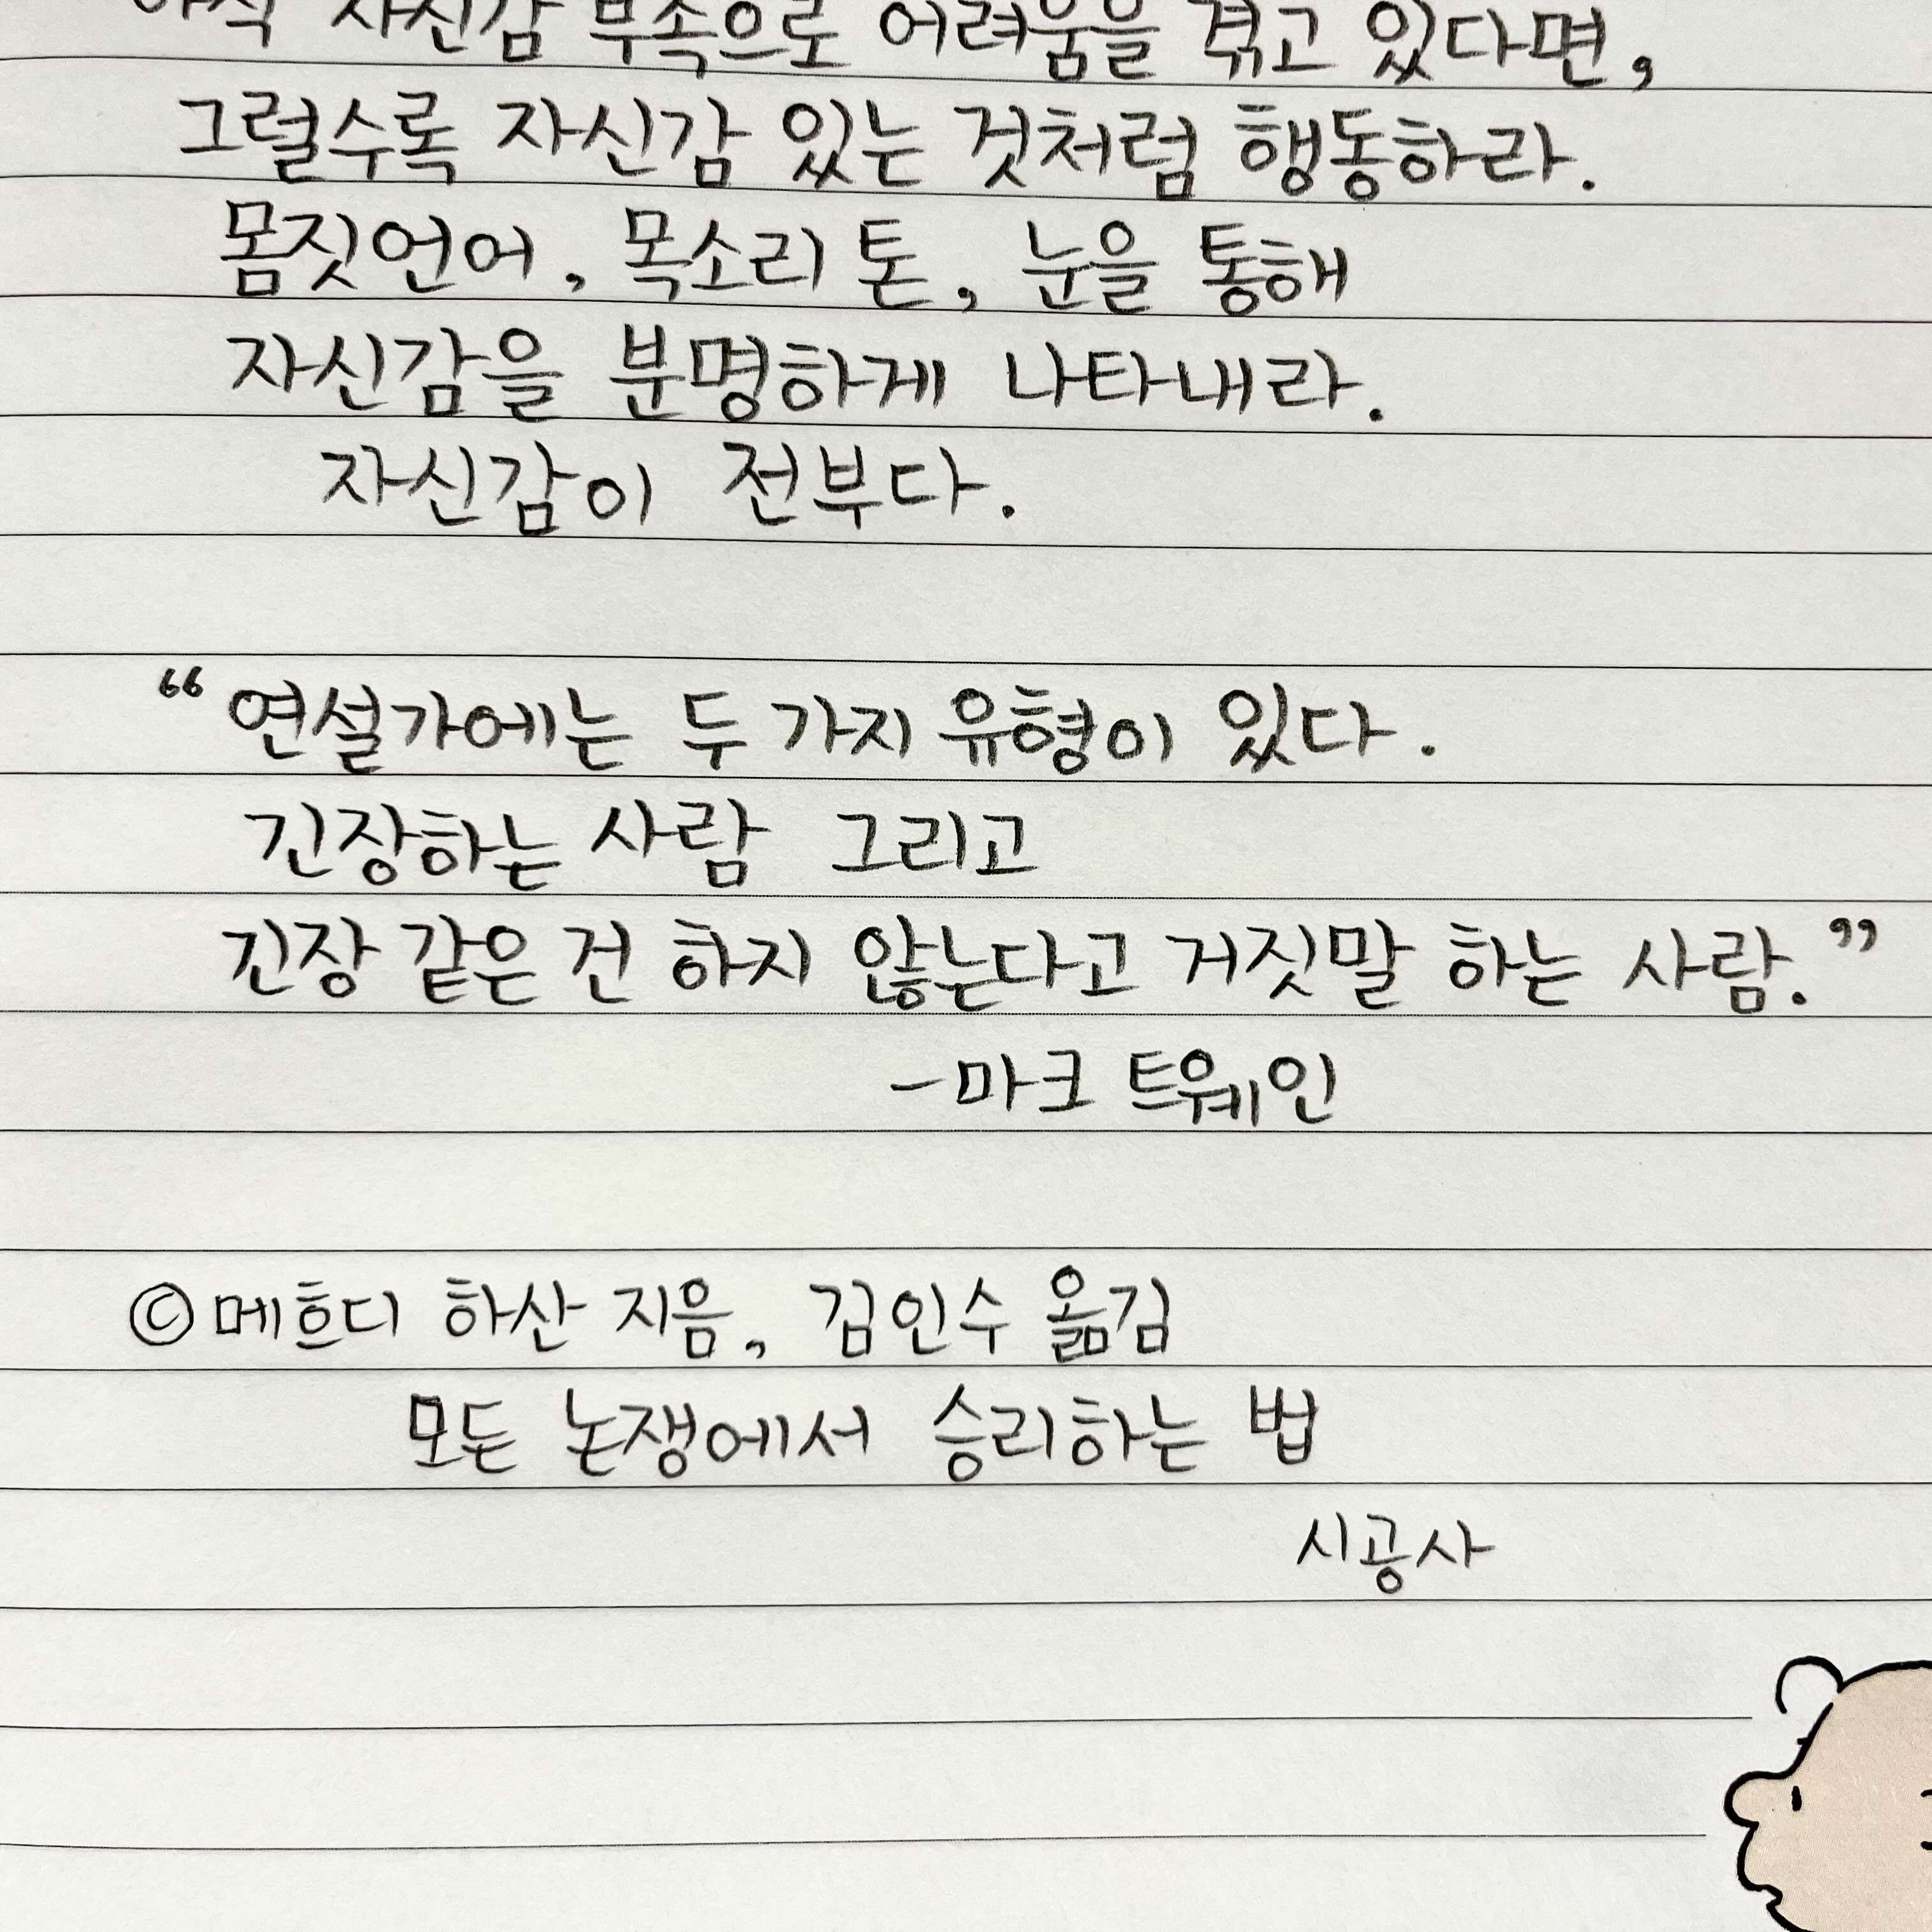 아직 자신감 부족으로 어려움을 겪고 있다면,
그럴수록 자신감 있는 것처럼 행동하라.
몸짓언어, 목소리 톤, 눈을 통해
자신감을 분명하게 나타내라.
자신감이 전부다.
“연설가에는 두 가지 유형이 있다.
긴장하는 사람 그리고
긴장 같은 건 하지 않는다고 거짓말 하는 사람.”
-마크 트웨인
©메흐디 하산 지음, 김인수 옮김
모든 논쟁에서 승리하는 법
시공사